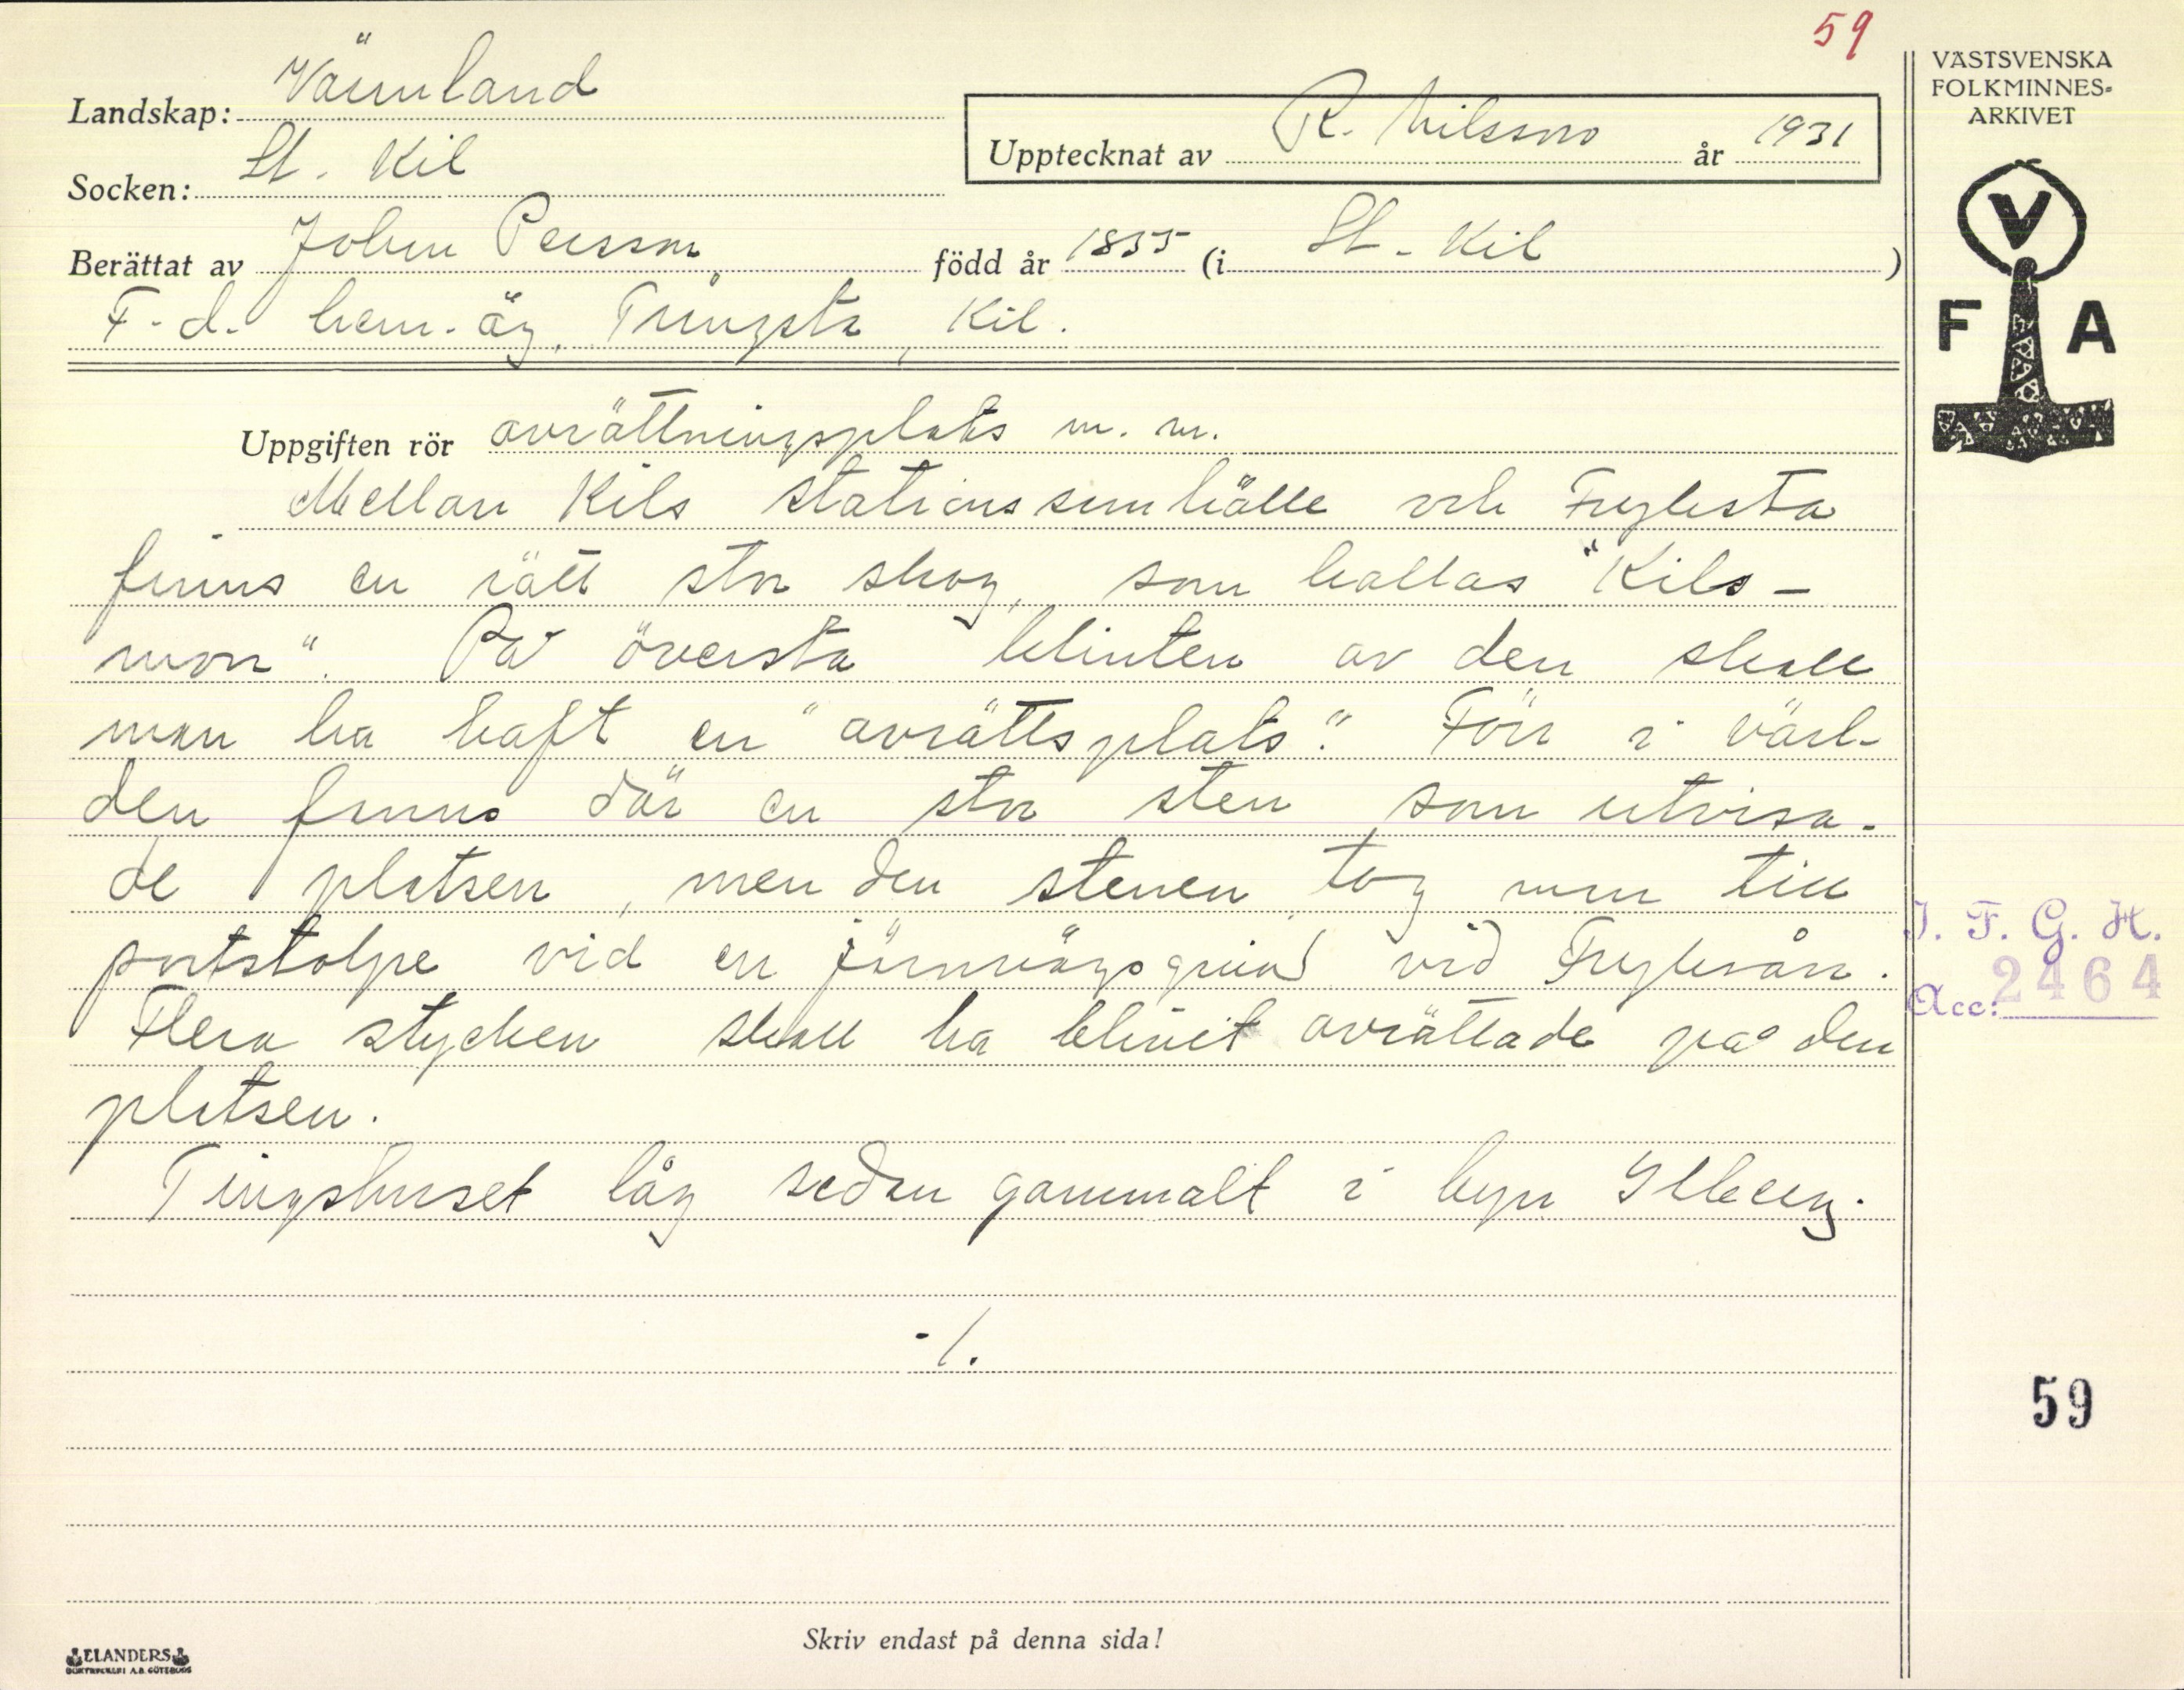 59
Landskap: Värmland
Socken: St. Kil
Upptecknat av R. Nilsson år 1931
Berättat av John Persson född år 1855 (i St. Kil)
F. d. hem. äg. Tringsta, Kil.
Uppgiften rör avrättningsplats m. m.
Mellan Kils stationssamhälle och Fryksta
finns en rätt stor skog, som kallas "Kils-
mon". På översta klinten av den skall
man ha haft en "avrättsplats". Förr i värl-
den fanns där en stor sten som utvisa-
de platsen, men den stenen tog man till
portstolpe vid en järnvägsgrind vid Fryksån.
Flera stycken skall ha blivit avrättade på den
platsen.
Tingshuset låg sedan gammalt i byn Illberg.
-/.
Skriv endast på denna sida!
ELANDERS
BOKTRYCKERI A.B. GÖTEBORG
VÄSTSVENSKA
FOLKMINNES-
ARKIVET
V
F A
I. F. G. H.
Acc: 2464
59